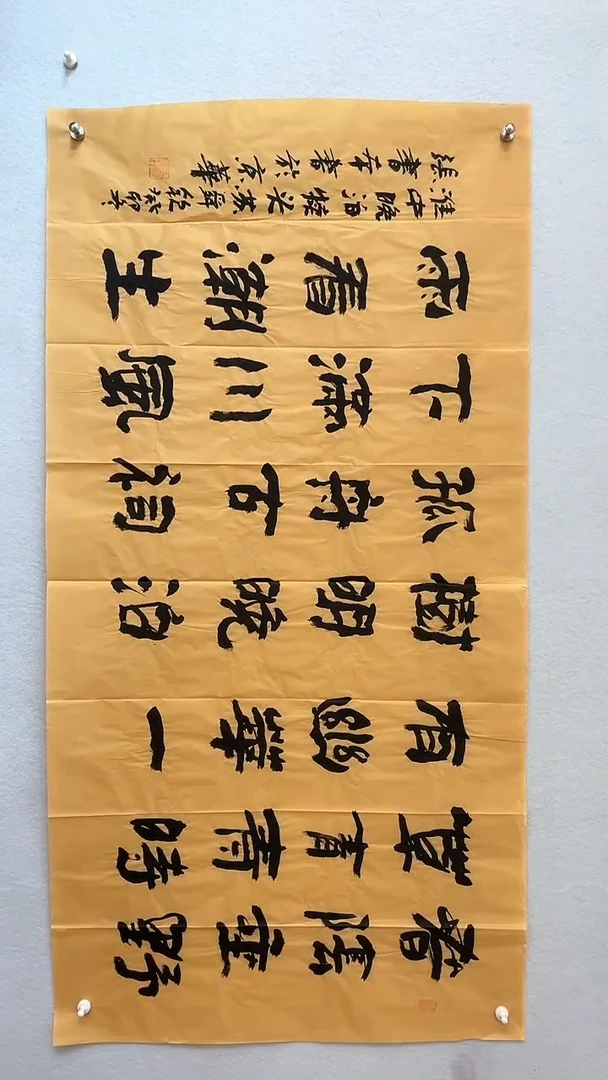 春陰垂野
草青青時
有幽華一
樹明晚泊
孤舟古祠
下滿川風
雨看潮生
淮中晚泊犢头苏舜钦
張書存書於京華